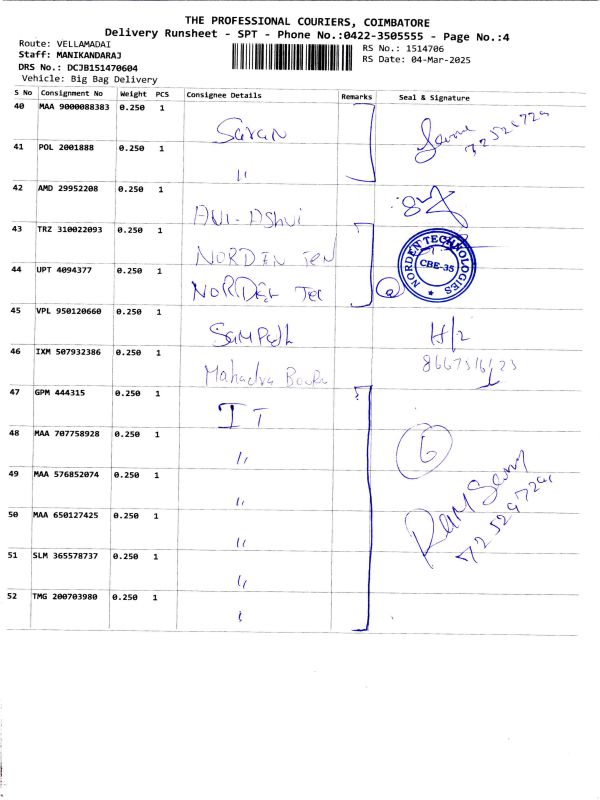 THE PROFESSIONAL COURIERS, COIMBATORE
Delivery Runsheet - SPT - Phone No.:0422-3505555 - Page No.:4
Route: VELLAMADAI
Staff: MANIKANDARAJ
DRS No.: DCJB151470604
Vehicle: Big Bag Delivery
RS No.: 1514706
RS Date: 04-Mar-2025
S No Consignment No Weight PCS Consignee Details Remarks Seal & Signature
40 MAA 9000088383 0.250 1 Saran
41 POL 2001888 0.250 1 "
42 AMD 29952208 0.250 1
43 TRZ 310022093 0.250 1 NORDEN Ten
NORDEN TECHNOLOGIES
CBE-35
44 UPT 4094377 0.250 1 NORDEN Tec
45 VPL 950120660 0.250 1 Sampath H/2
46 IXM 507932386 0.250 1 Mahadva
47 GPM 444315 0.250 1 IT
48 MAA 707758928 0.250 1 " 6
49 MAA 576852074 0.250 1 "
50 MAA 650127425 0.250 1 "
51 SLM 365578737 0.250 1 "
52 TMG 200703980 0.250 1